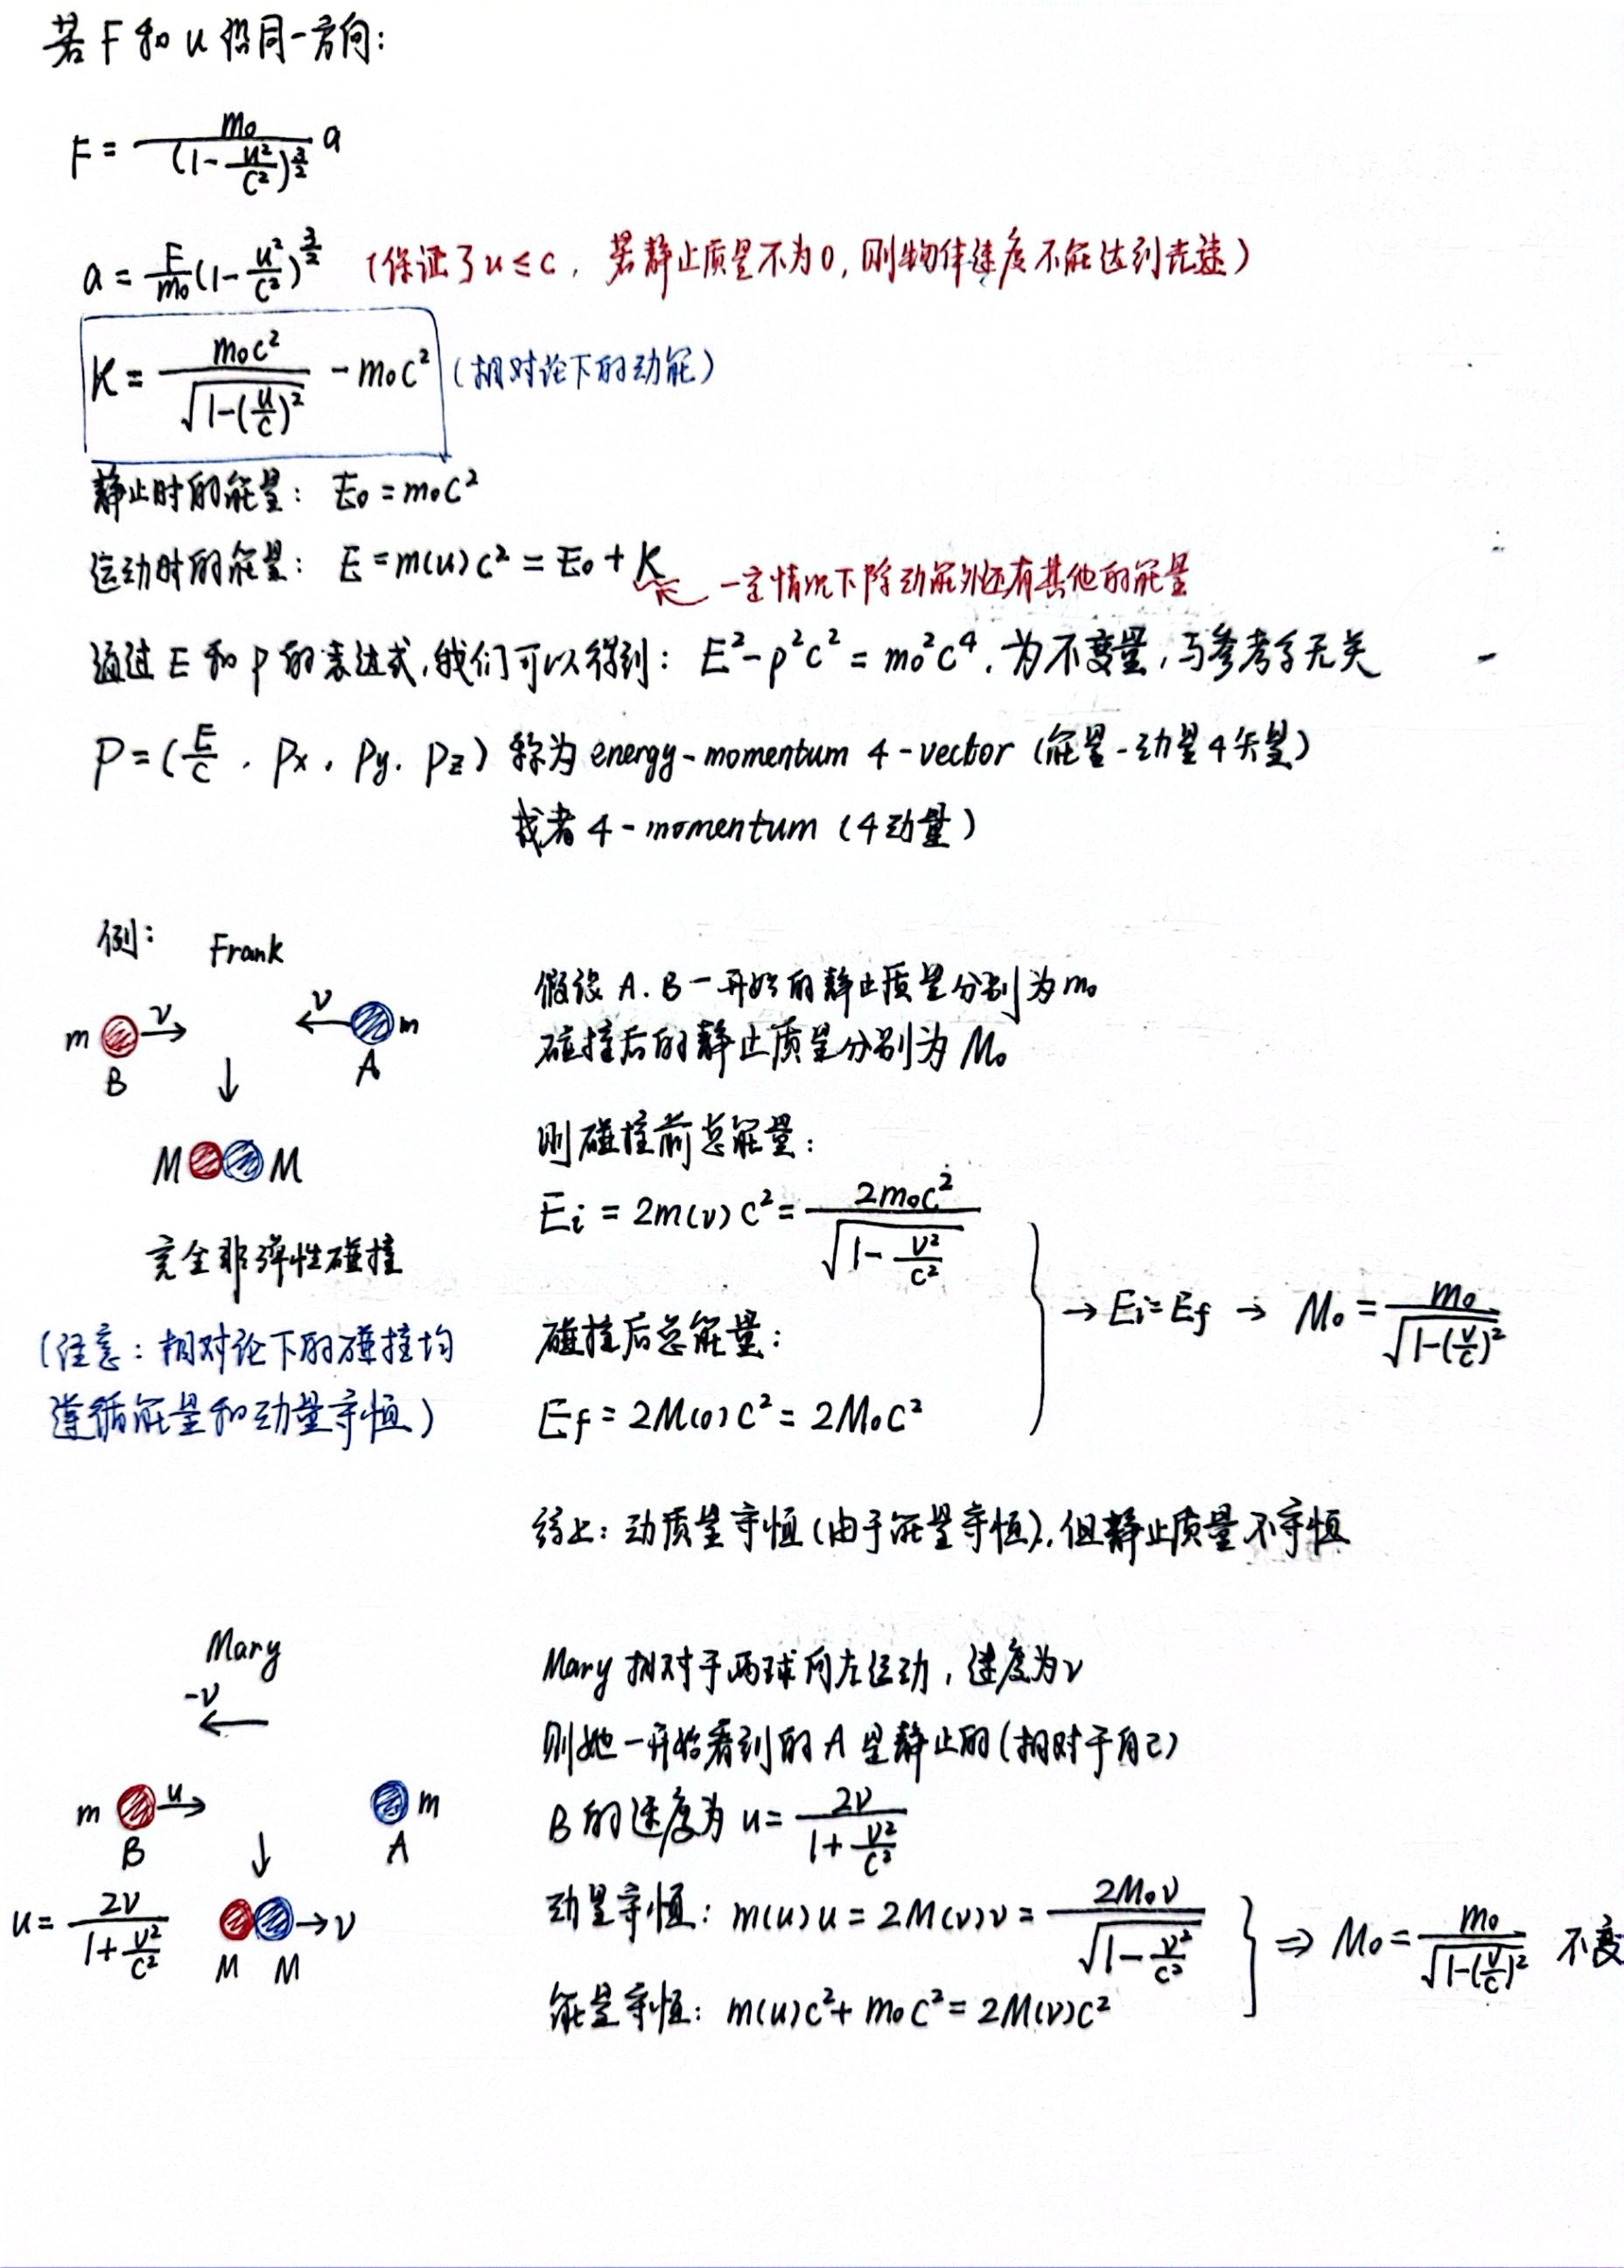 若 F 和 u 沿同一方向：
F = m₀/(1-u²/c²)^(3/2) a
a = F/m₀ (1-u²/c²)^(3/2) （保证了 u ≤ c，若静止质量不为0，则物体速度不能达到光速）
K = m₀c²/√(1-(u/c)²) - m₀c² （相对论下的动能）
静止时的能量： E₀ = m₀c²
运动时的能量： E = m(u)c² = E₀ + K ← 一定情况下除动能外还有其他的能量
通过 E 和 p 的表达式，我们可以得到： E² - p²c² = m₀²c⁴，为不变量，与参考系无关
P = (E/c , Px , Py , Pz) 称为 energy-momentum 4-vector (能量-动量4矢量)
或者 4-momentum (4动量)
例： Frank
m B v → ← v A m
↓
M M
完全非弹性碰撞
(注意：相对论下的碰撞均
遵循能量和动量守恒)
假设 A. B 一开始的静止质量分别为 m₀
碰撞后的静止质量分别为 M₀
则碰撞前总能量：
Ei = 2m(v)c² = 2m₀c²/√(1-v²/c²)
碰撞后总能量：
Ef = 2M(0)c² = 2M₀c²
→ Ei = Ef → M₀ = m₀/√(1-(v/c)²)
综上：动质量守恒(由于能量守恒)，但静止质量不守恒
Mary
-v ←
m B u → A m
↓
u = 2v/(1+v²/c²) M M → v
Mary 相对于两球向左运动，速度为 v
则她一开始看到的 A 是静止的 (相对于自己)
B 的速度为 u = 2v/(1+v²/c²)
动量守恒： m(u)u = 2M(v)v = 2M₀v/√(1-v²/c²)
能量守恒： m(u)c² + m₀c² = 2M(v)c²
⇒ M₀ = m₀/√(1-(v/c)²) 不变